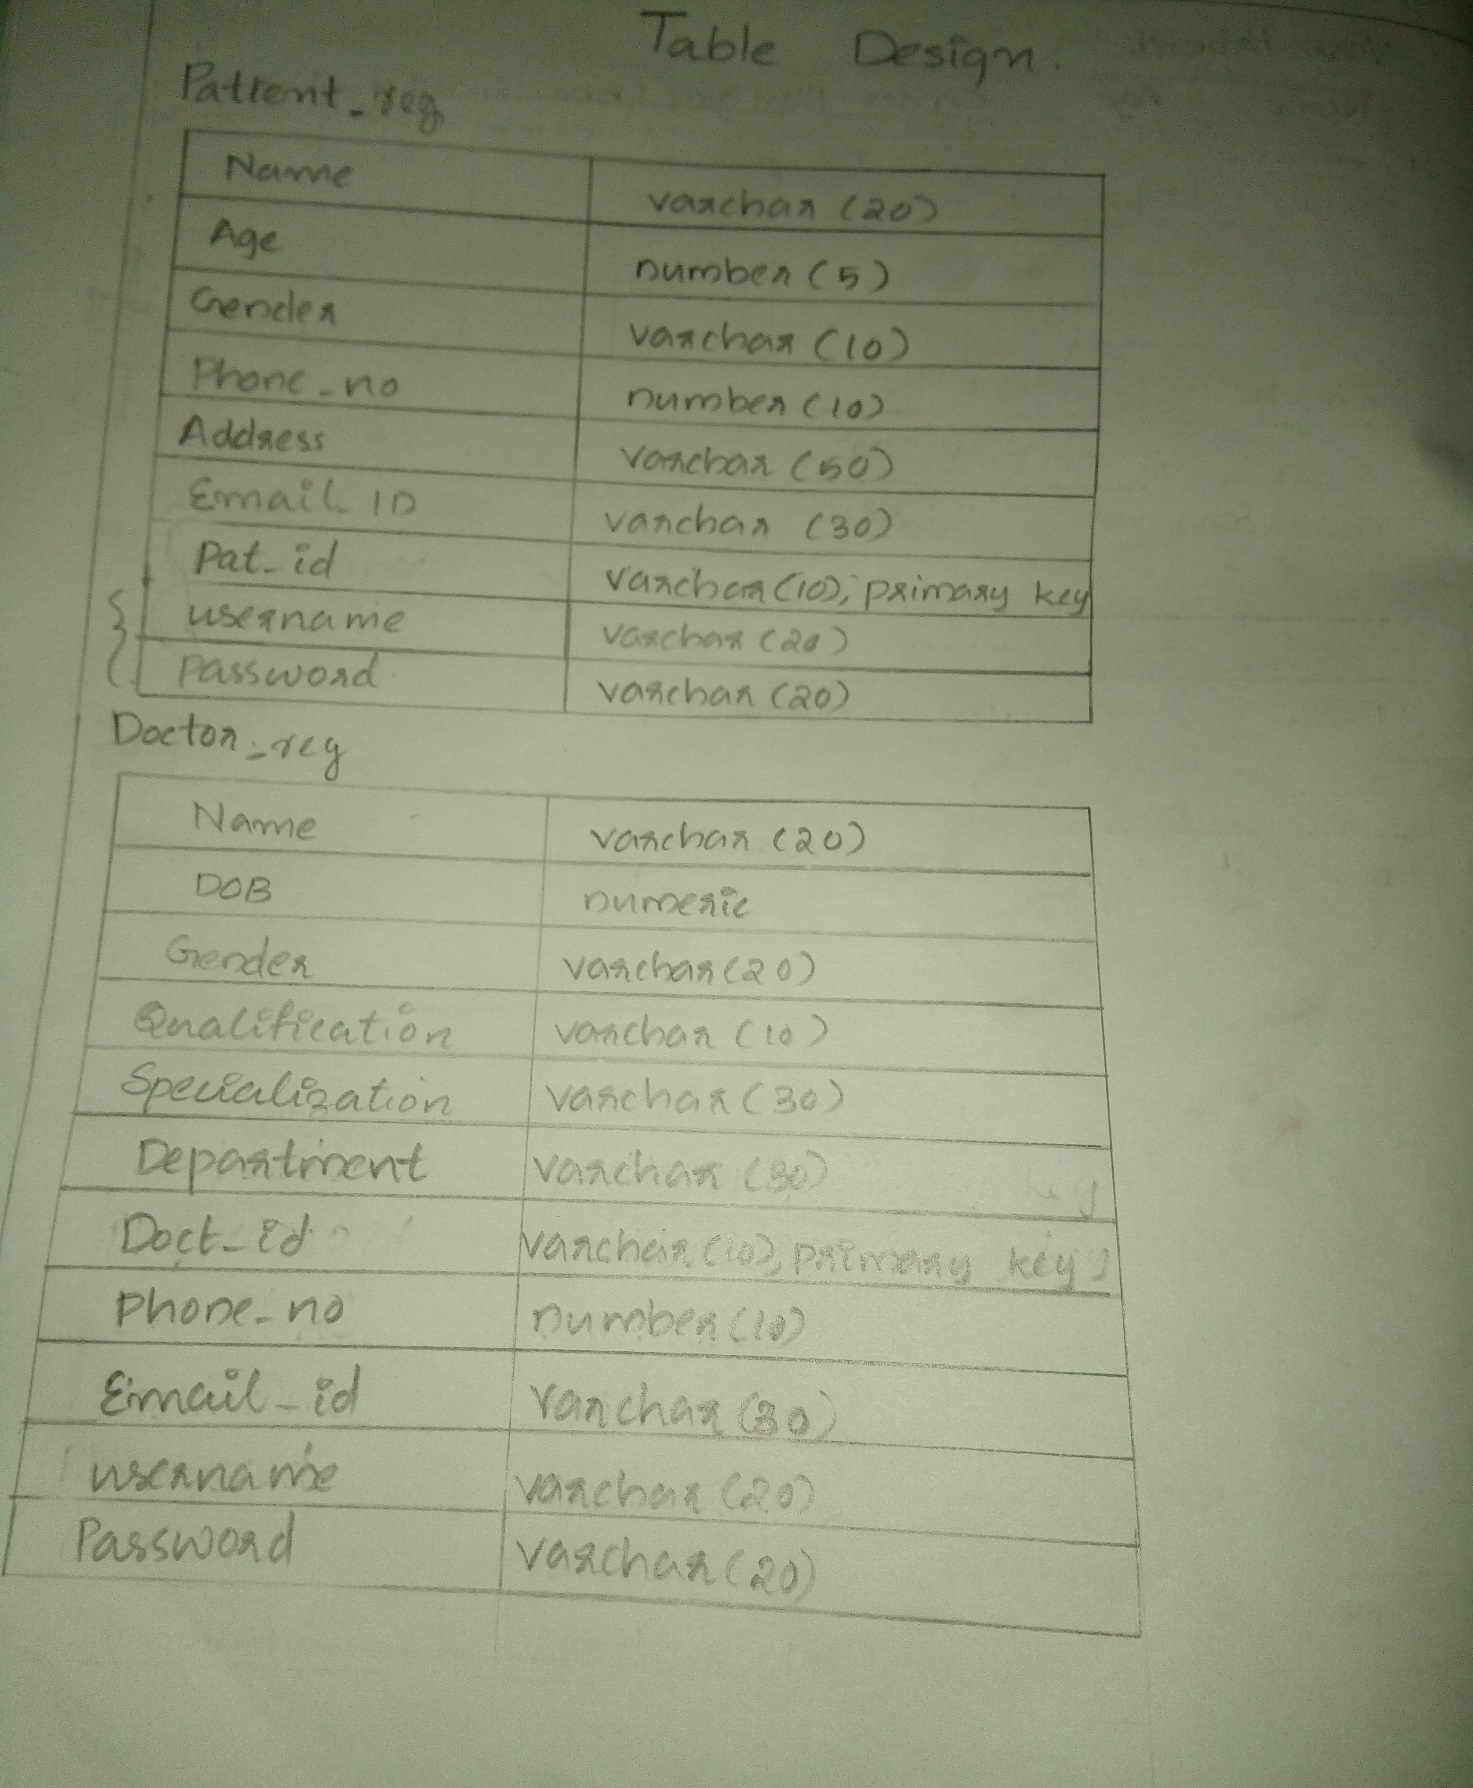 Table Design.
Patient_reg
Name varchar (20)
Age number (5)
Gender varchar (10)
Phone_no number (10)
Address varchar (50)
Email ID varchar (30)
Pat_id varchar (10), primary key
username varchar (20)
password varchar (20)
Doctor_reg
Name varchar (20)
DOB numeric
Gender varchar (20)
Qualification varchar (10)
Specialization varchar (30)
Department varchar (30)
Doct_id varchar (10), primary key
phone_no number (10)
Email_id varchar (30)
username varchar (20)
Password varchar (20)